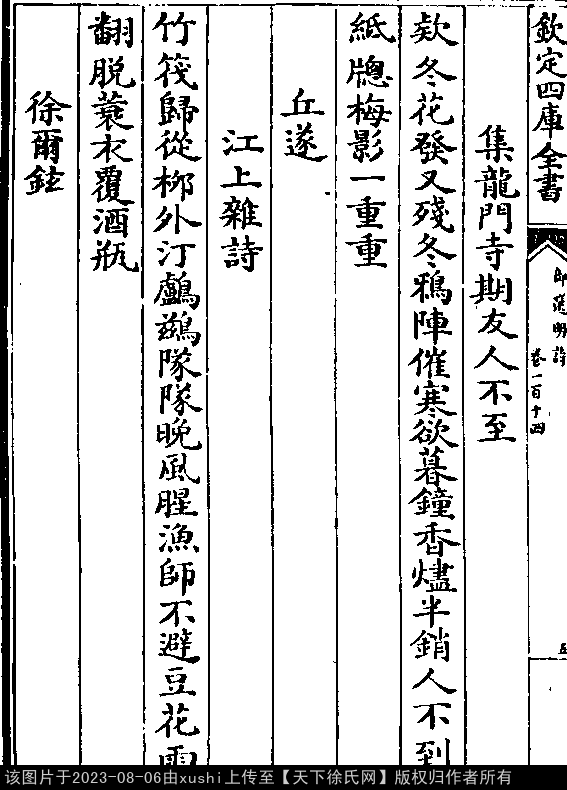 欽定四庫全書
御選明詩
卷一百十四
五
集龍門寺期友人不至
欵冬花發又殘冬鴉陣催寒欲暮鐘香燼半銷人不到
紙牕梅影一重重
丘遂
江上雜詩
竹筏歸從栁外汀鸕鷀隊隊晚風腥漁師不避豆花雨
翻脱蓑衣覆酒瓶
徐爾鉉
该图片于2023-08-06由xushi上传至【天下徐氏网】版权归作者所有